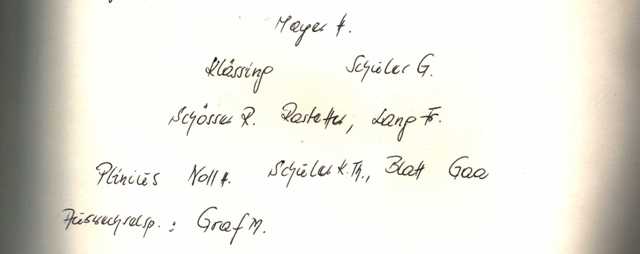 Mayer H.
Klässing Schüler G.
Schösser R. Rastetter, Lang Fr.
Plinius Noll H. Schüler K. Th., Blatt Gaa
Auswechselsp.: Graf M.